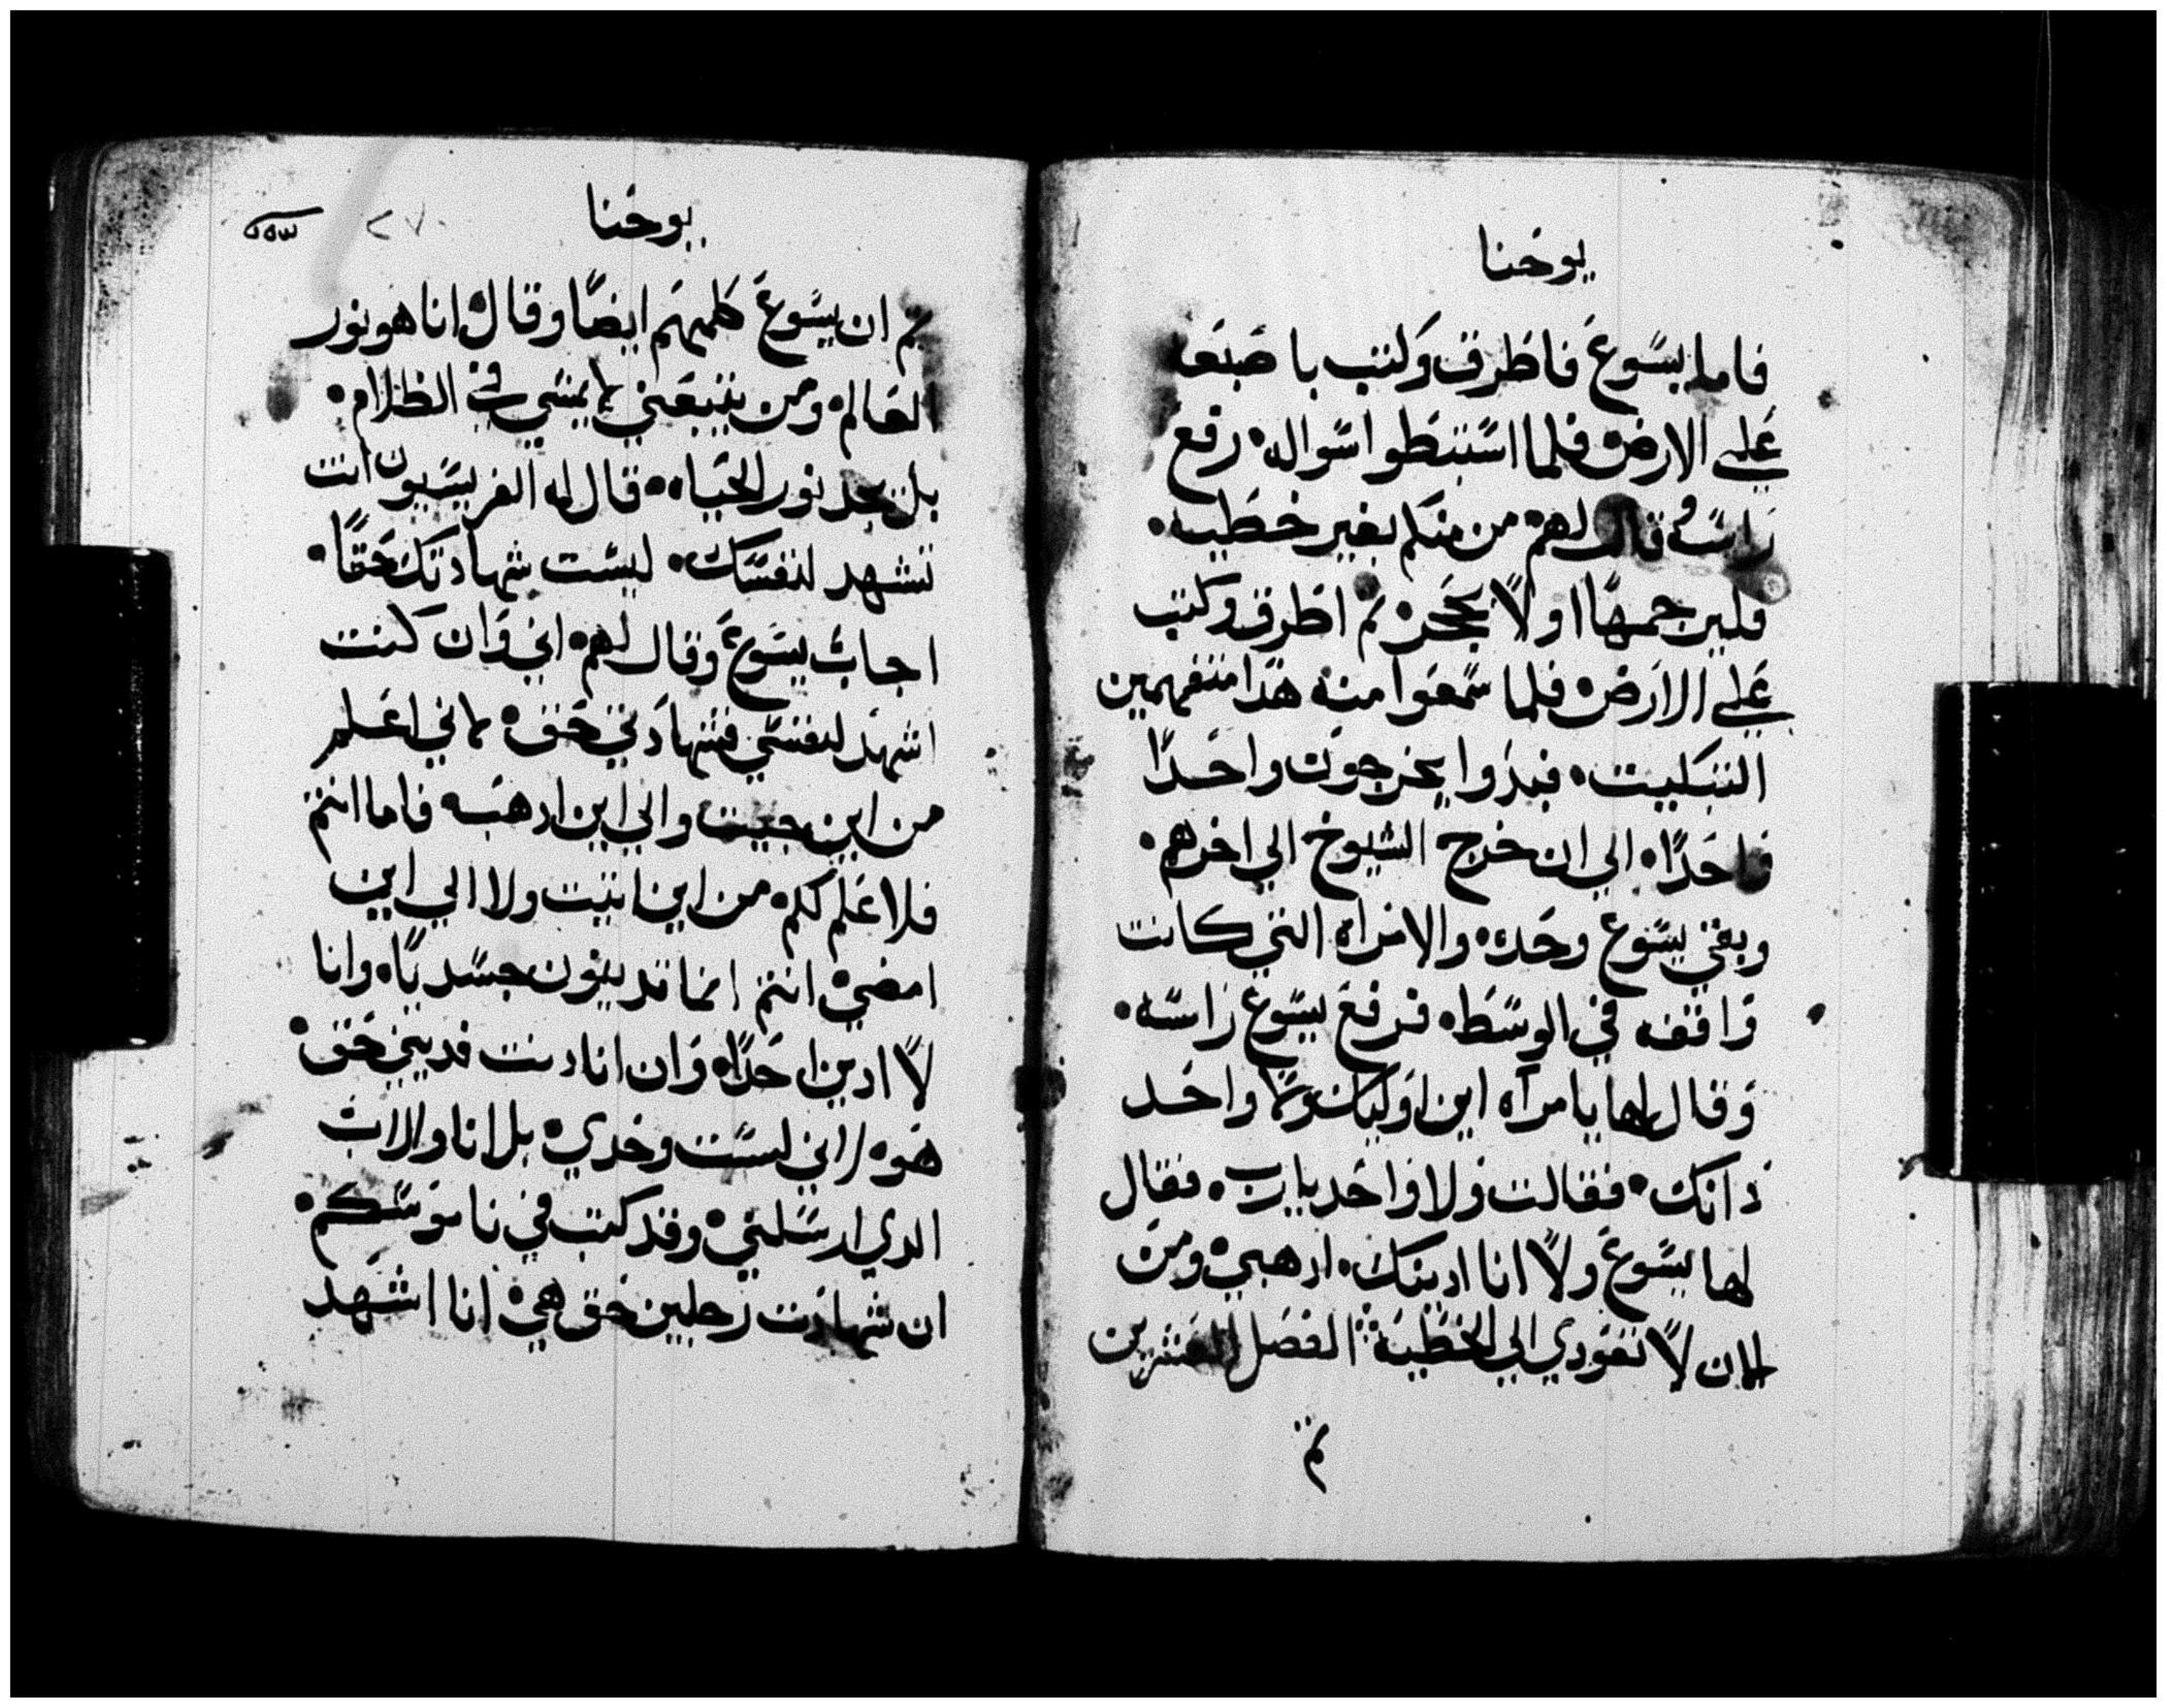 يوحنا
فاما يسوع فاطرق وكتب باصبعه
علي الارض فلما استبطوا سواله رفع
راسه وقال لهم من منكم بغير خطيه
فليرجمها اولاً بحجر ثم اطرق وكتب
علي الارض فلما سمعوا منه هدا متفهمين
التبكيت فبدوا يخرجون واحداً
فاحداً الي ان خرج الشيوخ الي اخرهم
وبقي يسوع وحده والامراه التي كانت
واقفه في الوسط فرفع يسوع راسه
وقال لها يامرآه اين اوليك واحد
دانك فقالت ولا واحد يارب فقال
لها يسوع ولاً انا ادينك ادهبي ومن
الان لاً تعودي الي الخطيه الفصل العشرين
ثم
يوحنا
٢٧٠
ثم ان يسوع كلمهم ايضاً وقال انا هو نور
العالم ومن يتبعني لا يمشي في الظلام
بل يجد نور الحياه قال له الفريسيون انت
تشهد لنفسك ليست شهادتك حقاً
اجاب يسوع وقال لهم اني وان كنت
اشهد لنفسي فشهادتي حق لاني اعلم
من اين جيت والي اين ادهب فاما انتم
فلا علم لكم من اين اتيت ولا الي اين
امضي انتم انما تدينون جسدياً وانا
لاً ادين احداً وان انا دنت فديني حق
هو لاني لست وحدي بل انا والاب
الدي ارسلني وقد كتب في ناموسكم
ان شهادت رجلين حق هي انا اشهد